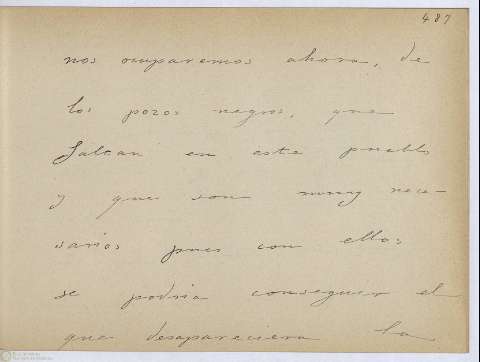 487
nos ocuparemos ahora, de
los pozos negros, que
faltan en este pueblo
y que son muy nece-
sarios pues con ellos
se podria conseguir el
que desapareciera la